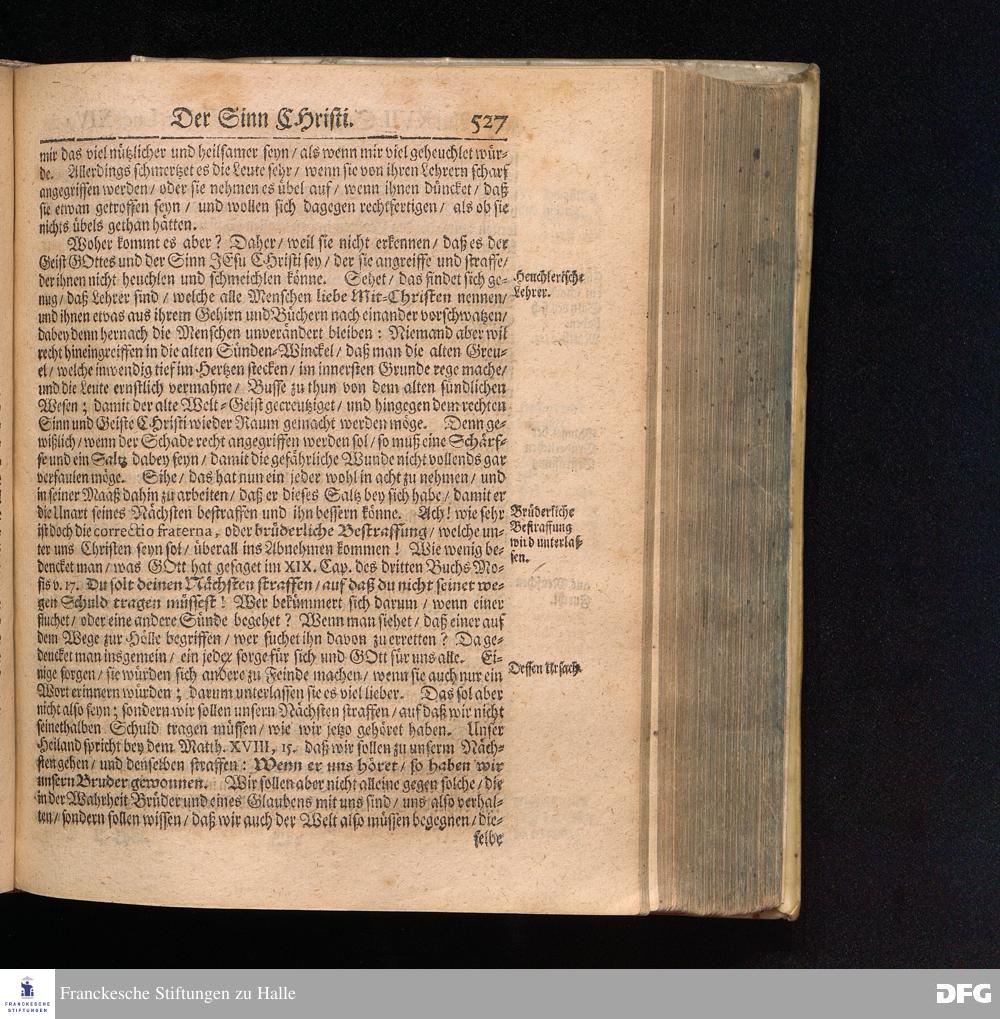 Der Sinn CHristi. 527
mir das viel nützlicher und heilsamer seyn / als wenn mir viel geheuchlet wür-
de. Allerdings schmertzet es die Leute sehr / wenn sie von ihren Lehrern scharf
angegriffen werden / oder sie nehmen es übel auf / wenn ihnen düncket / daß
sie etwan getroffen seyn / und wollen sich dagegen rechtfertigen / als ob sie
nichts übels gethan hätten.
Woher kommt es aber? Daher / weil sie nicht erkennen / daß es der
Geist GOttes und der Sinn JEsu CHristi sey / der sie angreiffe und straffe /
der ihnen nicht heuchlen und schmeichlen könne. Sehet / das findet sich ge-
nug / daß Lehrer sind / welche alle Menschen liebe Mit-Christen nennen /
und ihnen etwas aus ihrem Gehirn und Büchern nach einander vorschwatzen /
dabey denn hernach die Menschen unverändert bleiben: Niemand aber wil
recht hineingreiffen in die alten Sünden-Winckel / daß man die alten Greu-
el / welche inwendig tief im Hertzen stecken / im innersten Grunde rege mache /
und die Leute ernstlich vermahne / Busse zu thun von dem alten sündlichen
Wesen; damit der alte Welt-Geist gecreutziget / und hingegen dem rechten
Sinn und Geiste CHristi wieder Raum gemacht werden möge. Denn ge-
wißlich / wenn der Schade recht angegriffen werden sol / so muß eine Schärf-
fe und ein Saltz dabey seyn / damit die gefährliche Wunde nicht vollends gar
verfaulen möge. Sihe / das hat nun ein jeder wohl in acht zu nehmen / und
in seiner Maaß dahin zu arbeiten / daß er dieses Saltz bey sich habe / damit er
die Unart seines Nächsten bestraffen und ihn bessern könne. Ach! wie sehr
ist doch die correctio fraterna, oder brüderliche Bestraffung / welche un-
ter uns Christen seyn sol / überall ins Abnehmen kommen! Wie wenig be-
dencket man / was GOtt hat gesaget im XIX. Cap. des dritten Buchs Mo-
sis v. 17. Du solt deinen Nächsten straffen / auf daß du nicht seinet we-
gen Schuld tragen müssest! Wer bekümmert sich darum / wenn einer
fluchet / oder eine andere Sünde begehet? Wenn man siehet / daß einer auf
dem Wege zur Hölle begriffen / wer suchet ihn davon zu erretten? Da ge-
dencket man insgemein / ein jeder sorge für sich und GOtt für uns alle. Ei-
nige sorgen / sie würden sich andere zu Feinde machen / wenn sie auch nur ein
Wort erinnern würden; darum unterlassen sie es viel lieber. Das sol aber
nicht also seyn; sondern wir sollen unsern Nächsten straffen / auf daß wir nicht
seinethalben Schuld tragen müssen / wie wir jetzo gehöret haben. Unser
Heiland spricht bey dem Matth. XVIII, 15. daß wir sollen zu unserm Näch-
sten gehen / und denselben straffen: Wenn er uns höret / so haben wir
unsern Bruder gewonnen. Wir sollen aber nicht alleine gegen solche / die
in der Wahrheit Brüder und eines Glaubens mit uns sind / uns also verhal-
ten / sondern sollen wissen / daß wir auch der Welt also müssen begegnen / die-
selbe
Heuchlerische
Lehrer.
Brüderliche
Bestraffung
wird unterlas-
sen.
Dessen Ursach.
FRANCKESCHE
STIFTUNGEN
Franckesche Stiftungen zu Halle
DFG